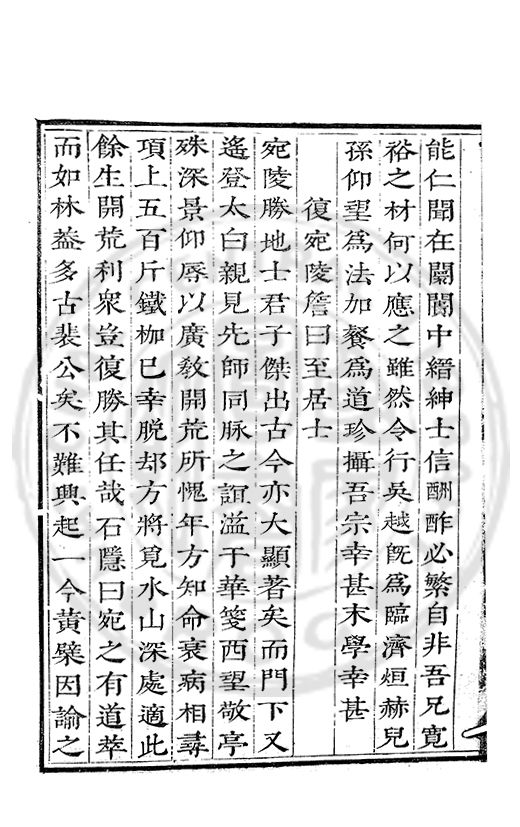 能仁聞在闤闠中縉紳士信酬酢必繁自非吾兄寬
裕之材何以應之雖然令行吳越旣爲臨濟烜赫兒
孫仰望爲法加餐爲道珍攝吾宗幸甚末學幸甚
復宛陵詹曰至居士
宛陵勝地士君子傑出古今亦大顯著矣而門下又
遙登太白親見先師同脉之誼溢于華箋西望敬亭
殊深景仰辱以廣敎開荒所愧年方知命衰病相尋
項上五百斤鐵枷已幸脫却方將覓水山深處適此
餘生開荒利衆豈復勝其任哉石隱曰宛之有道萃
而如林葢多古裴公矣不難興起一今黃檗因諭之